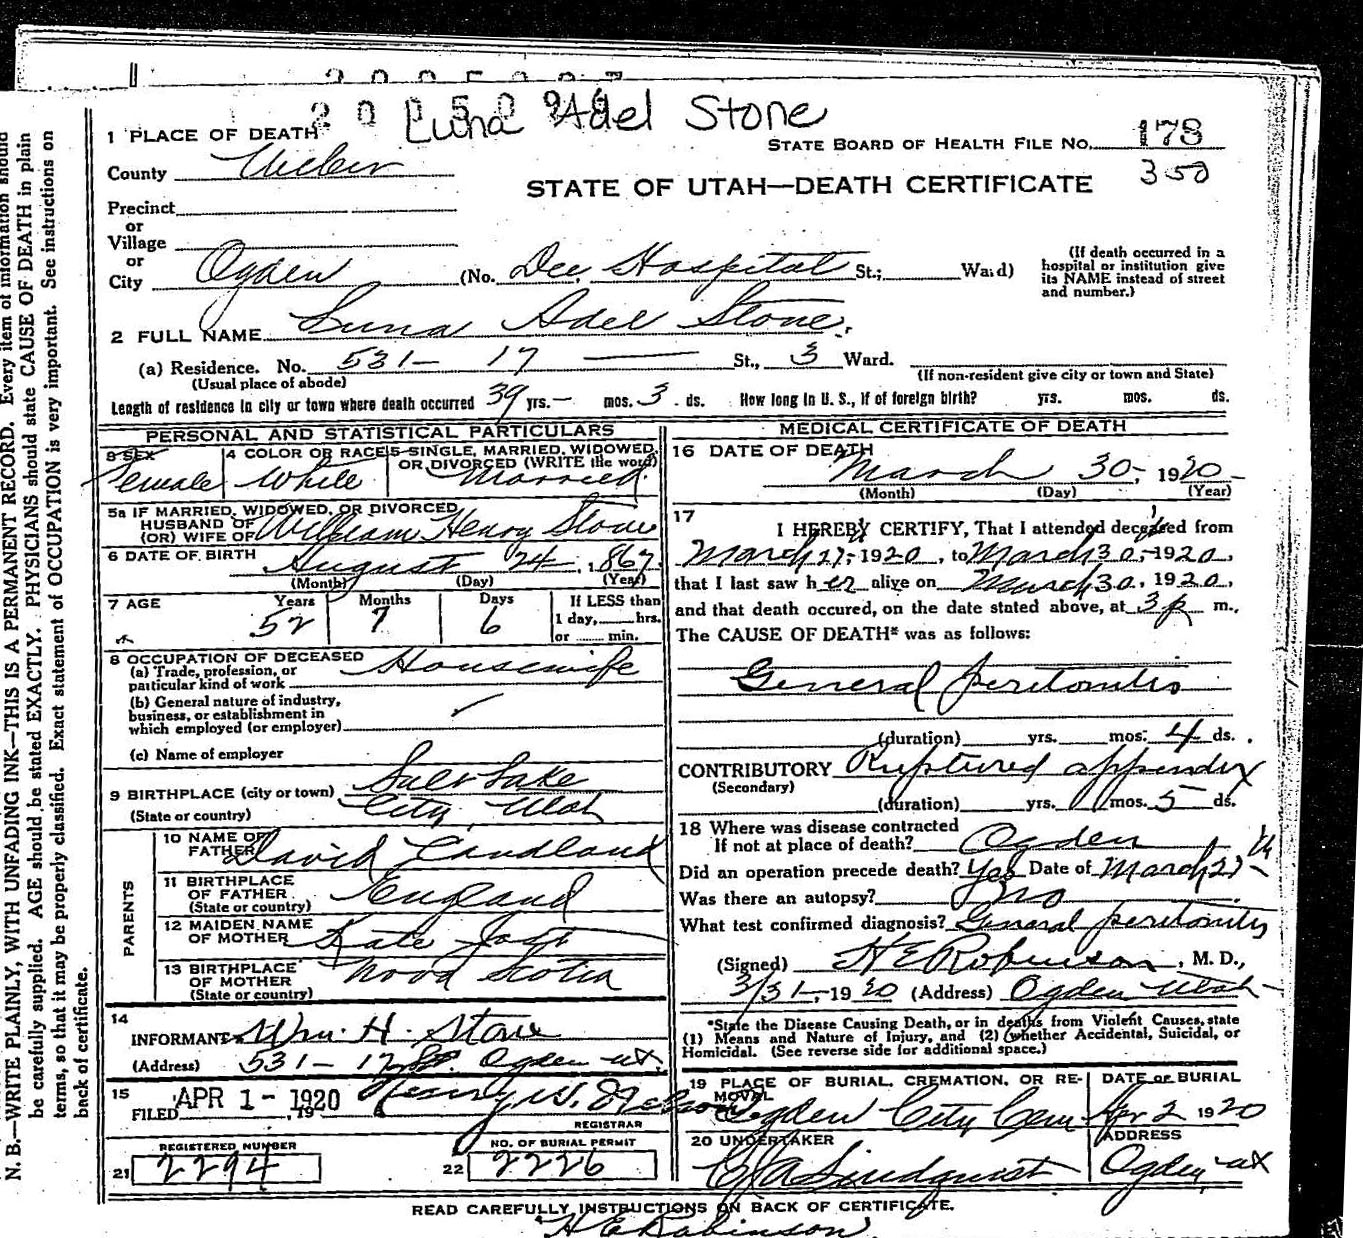 2005096
Luna Adel Stone
1 PLACE OF DEATH
STATE BOARD OF HEALTH FILE NO. 178
County Weber
350
STATE OF UTAH—DEATH CERTIFICATE
Precinct
or
Village
or
City Ogden (No. Dee Hospital St.; Ward)
(If death occurred in a hospital or institution give its NAME instead of street and number.)
2 FULL NAME Luna Adel Stone.
(a) Residence. No. 531 - 17 St., 3 Ward.
(Usual place of abode)
(If non-resident give city or town and State)
Length of residence in city or town where death occurred 39 yrs. — mos. 3 ds. How long in U. S., if of foreign birth? yrs. mos. ds.
PERSONAL AND STATISTICAL PARTICULARS
3 SEX Female
4 COLOR OR RACE White
5 SINGLE, MARRIED, WIDOWED, OR DIVORCED (WRITE the word) Married.
5a IF MARRIED, WIDOWED, OR DIVORCED
HUSBAND OF
(OR) WIFE OF William Henry Stone
6 DATE OF BIRTH August 24, 1867.
(Month) (Day) (Year)
7 AGE Years 52 Months 7 Days 6 If LESS than 1 day, hrs. or min.
8 OCCUPATION OF DECEASED
(a) Trade, profession, or particular kind of work Housewife
(b) General nature of industry, business, or establishment in which employed (or employer)
(c) Name of employer
9 BIRTHPLACE (city or town) Salt Lake
(State or country) City, Utah
PARENTS
10 NAME OF FATHER David Candland
11 BIRTHPLACE OF FATHER England
(State or country)
12 MAIDEN NAME OF MOTHER Kate Jost
13 BIRTHPLACE OF MOTHER Nova Scotia
(State or country)
14
INFORMANT Wm. H. Stone
(Address) 531 - 17 St. Ogden Ut.
15
FILED APR 1 - 1920, 19 Henry W. Nelson
REGISTRAR
REGISTERED NUMBER
21 2294
NO. OF BURIAL PERMIT
22 2226
MEDICAL CERTIFICATE OF DEATH
16 DATE OF DEATH March 30, 1920
(Month) (Day) (Year)
17
I HEREBY CERTIFY, That I attended deceased from
March 27, 1920, to March 30, 1920,
that I last saw her alive on March 30, 1920,
and that death occured, on the date stated above, at 3 p m.,
The CAUSE OF DEATH* was as follows:
General peritonitis
(duration) yrs. mos. 4 ds.
CONTRIBUTORY Ruptured appendix
(Secondary)
(duration) yrs. mos. 5 ds.
18 Where was disease contracted
If not at place of death? Ogden
Did an operation precede death? Yes Date of March 27
Was there an autopsy? No
What test confirmed diagnosis? General peritonitis
(Signed) H E Robinson, M. D.,
3/31, 1920 (Address) Ogden Utah
*State the Disease Causing Death, or in deaths from Violent Causes, state
(1) Means and Nature of Injury, and (2) whether Accidental, Suicidal, or
Homicidal. (See reverse side for additional space.)
19 PLACE OF BURIAL, CREMATION, OR REMOVAL Ogden City Cem
DATE OF BURIAL Apr 2 1920
20 UNDERTAKER Lindquist
ADDRESS Ogden ut
READ CAREFULLY INSTRUCTIONS ON BACK OF CERTIFICATE.
H E Robinson
N. B.—WRITE PLAINLY, WITH UNFADING INK—THIS IS A PERMANENT RECORD. Every item of information should
be carefully supplied. AGE should be stated EXACTLY. PHYSICIANS should state CAUSE OF DEATH in plain
terms, so that it may be properly classified. Exact statement of OCCUPATION is very important. See instructions on
back of certificate.